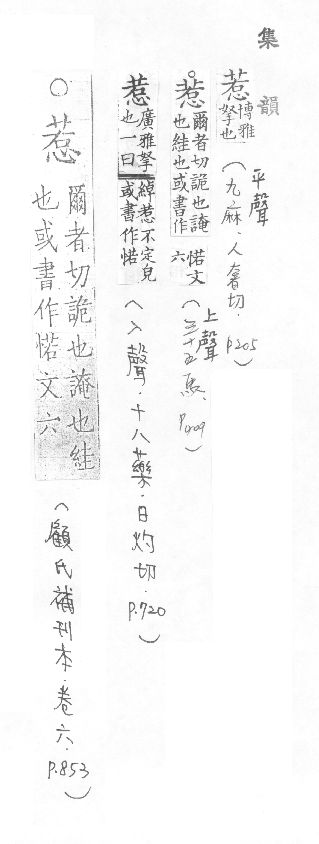 集韻
惹 博雅
拏也
(平聲
九麻.人奢切.
P205)
○惹 爾者切詭也諵
也絓也或書作惹文
六
(上聲
三十五馬.
P409)
惹 廣雅拏
也一曰綽惹不定皃
或書作惹
(入聲.十八藥.日灼切.P.720)
○惹 爾者切詭也諵也絓
也或書作惹文六
(顧氏補刊本.卷六.P.853)